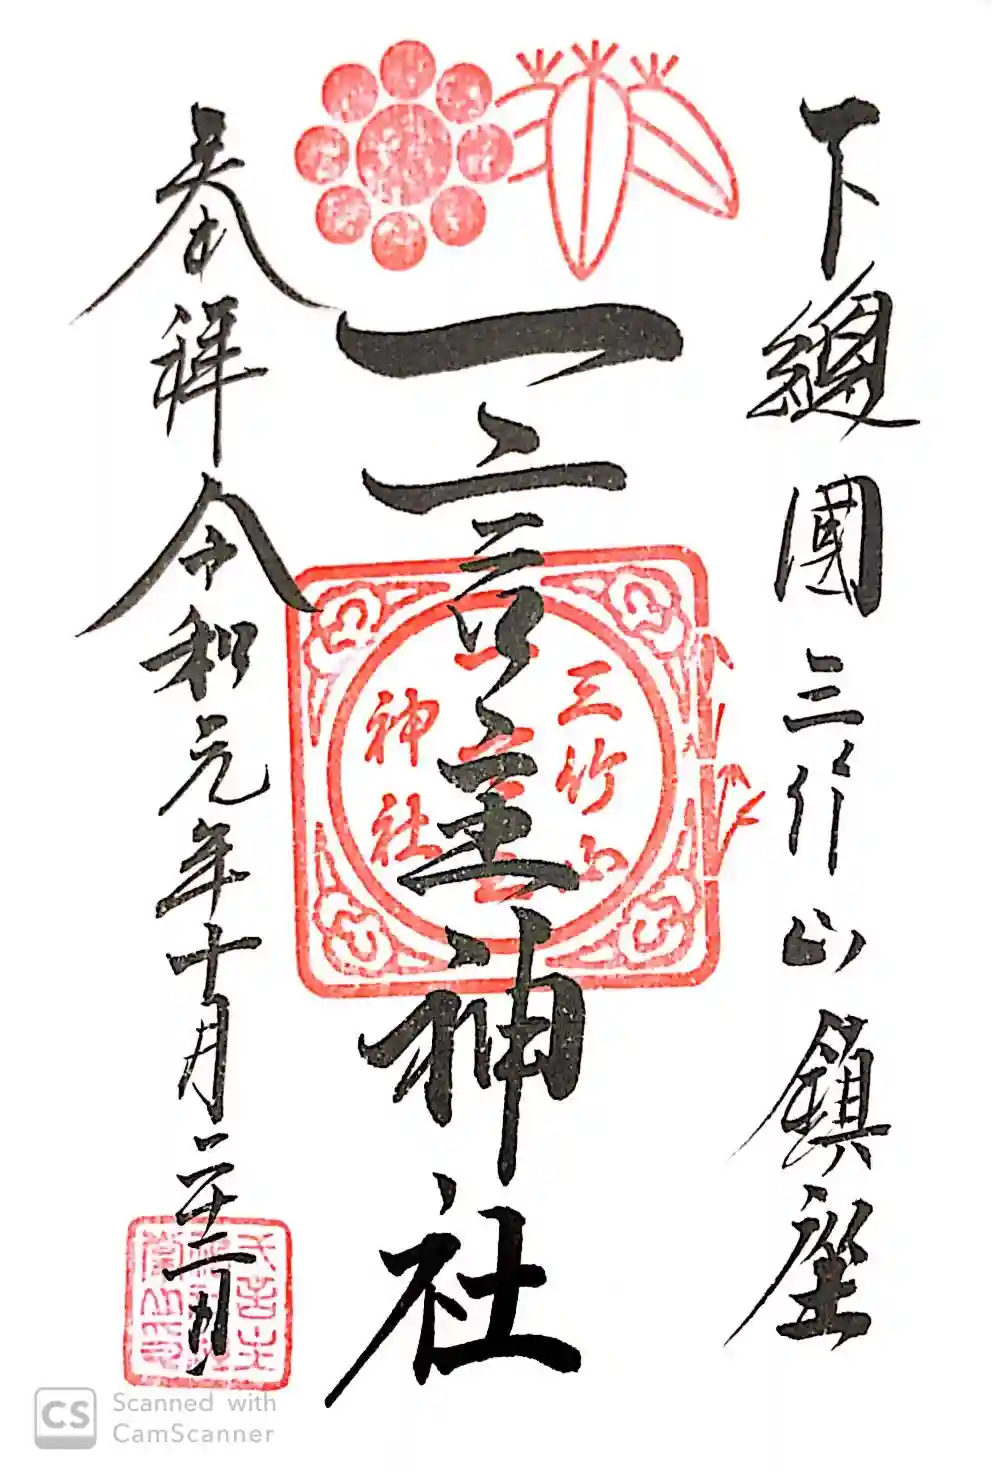 下總國三竹山鎮座
一言主神社
奉拝 令和元年十月二十二日
三竹山
神社
CS Scanned with
CamScanner